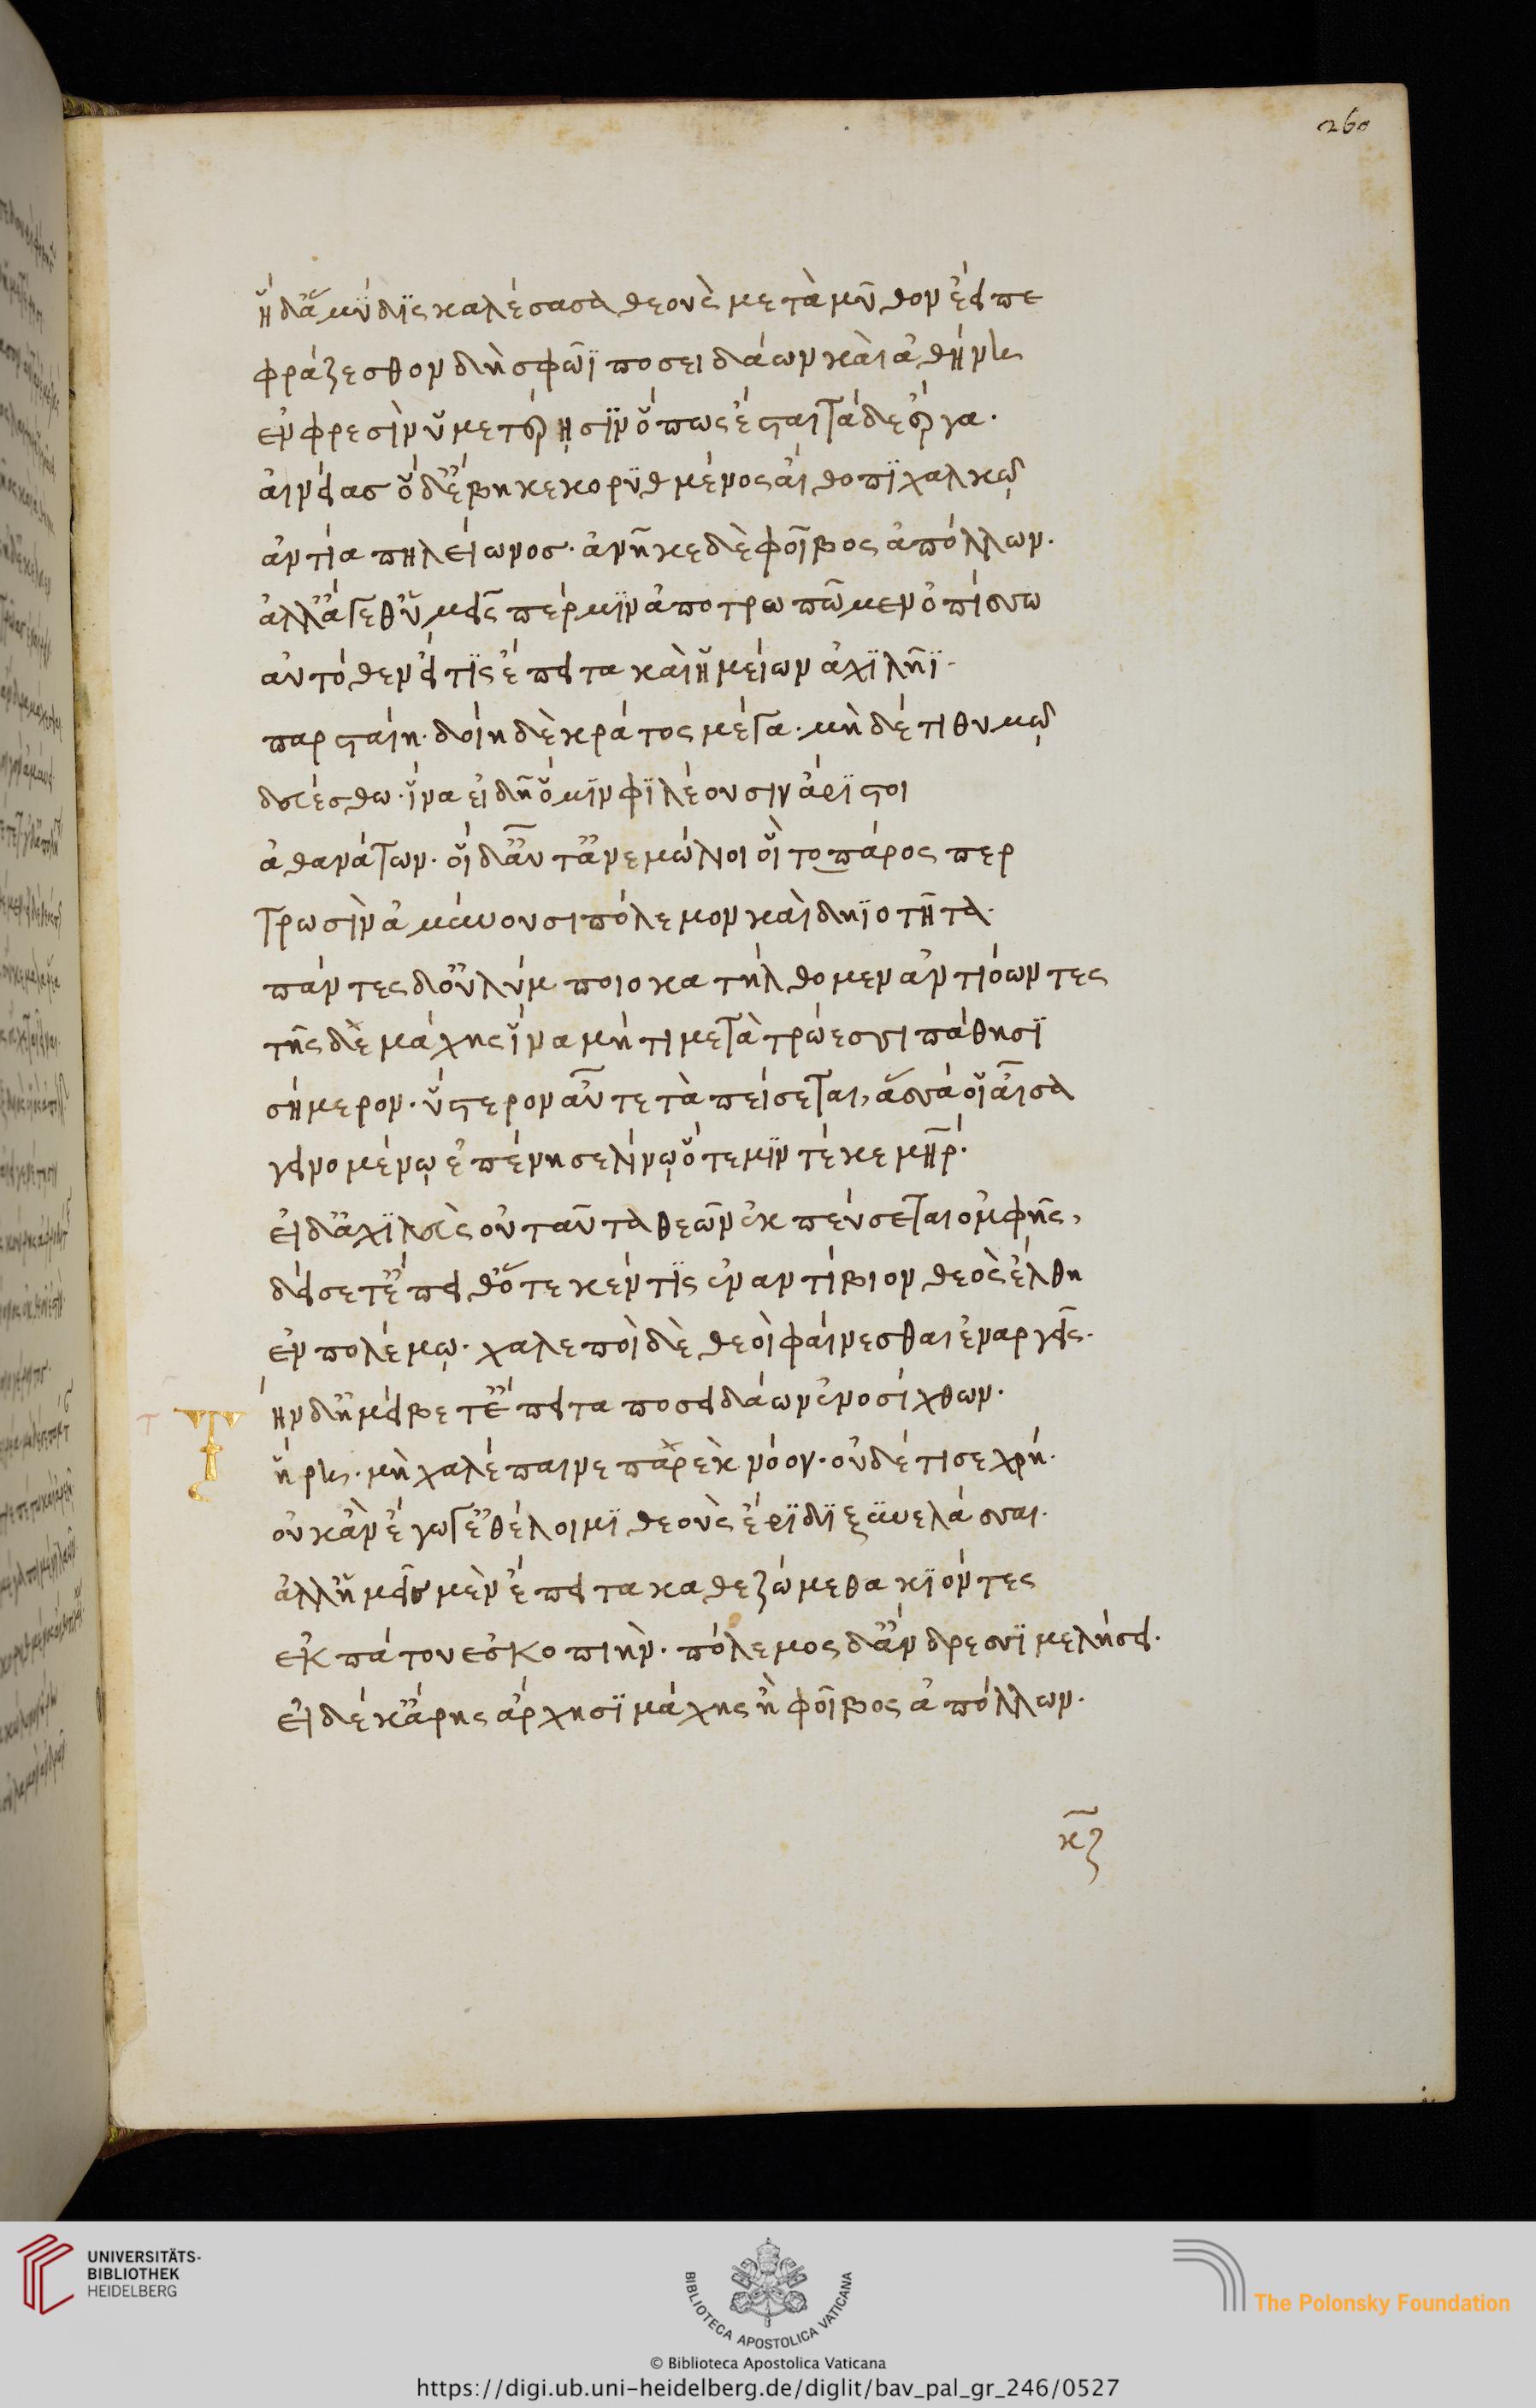 260
ἥ δ' ἄμυδις καλέσασα θεοὺς μετὰ μῦθον ἔειπε
φράζεσθον δὴ σφῶϊ ποσειδάων καὶ ἀθήνη
ἐν φρεσὶν ὑμετέρῃσιν ὅπως ἔσται τάδε ἔργα.
αἰνείας ὅδ' ἔβη κεκορυθμένος αἴθοπι χαλκῷ
ἀντία πηλείωνος. ἀνῆκε δὲ φοῖβος ἀπόλλων.
ἀλλ' ἄγεθ' ἡμεῖς πέρ μιν ἀποτρωπῶμεν ὀπίσσω
αὐτόθεν εἴ τις ἔπειτα καὶ ἡμείων ἀχιλῆϊ.
παρσταίη. δοίη δὲ κράτος μέγα. μὴ δέ τι θυμῷ
δευέσθω. ἵνα εἰδῇ ὅ μιν φιλέουσιν ἄριστοι
ἀθανάτων. οἳ δ' αὖτ' ἀνεμώλιοι οἳ τοπάρος περ
τρωσὶν ἀμύνουσι πόλεμον καὶ δηϊοτῆτα.
πάντες δ' οὐλύμποιο κατήλθομεν ἀντιόωντες
τῆσδε μάχης ἵνα μή τι μετὰ τρώεσσι πάθησι
σήμερον. ὕστερον αὖτε τὰ πείσεται, ἅσσά οἱ αἶσα
γεινομένῳ ἐπένησε λίνῳ ὅτε μιν τέκε μῆρ.
εἰ δ' ἀχιλεὺς οὐ ταῦτα θεῶν ἐκ πεύσεται ὀμφῆς,
δείσετ' ἔπειθ' ὅτε κέν τις ἐναντίβιον θεὸς ἔλθη
ἐν πολέμῳ. χαλεποὶ δὲ θεοὶ φαίνεσθαι ἐναργεῖς.
Τ ὴν δ' ἠμείβετ' ἔπειτα ποσειδάων ἐνοσίχθων.
ἥρη. μὴ χαλέπαινε παρὲκ νόον. οὐδέ τί σε χρή.
οὐκ ἂν ἔγωγ' ἐθέλοιμι θεοὺς ἔριδι ξυνελάσσαι.
ἀλλ' ἡμεῖς μὲν ἔπειτα καθεζώμεθα κιόντες
ἐκ πάτου ἐς σκοπιήν. πόλεμος δ' ἄνδρεσσι μελήσει.
εἰ δέ κ' ἄρης ἄρχησι μάχης ἢ φοῖβος ἀπόλλων.
κζ
UNIVERSITÄTS-
BIBLIOTHEK
HEIDELBERG
BIBLIOTECA APOSTOLICA VATICANA
The Polonsky Foundation
© Biblioteca Apostolica Vaticana
https://digi.ub.uni-heidelberg.de/diglit/bav_pal_gr_246/0527